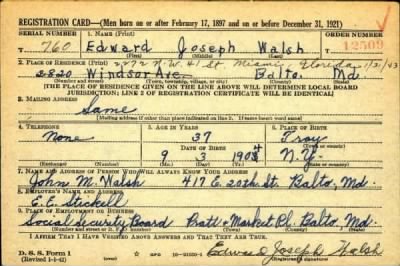 REGISTRATION CARD—(Men born on or after February 17, 1897 and on or before December 31, 1921)
SERIAL NUMBER 1. NAME (Print) ORDER NUMBER
760 Edward Joseph Walsh 12509
(First) (Middle) (Last)
2. PLACE OF RESIDENCE (Print) 2272 N.W. 41 St. Miami, Florida 1/21/43
2820 Windsor Ave. Balto. Md.
(Number and street) (Town, township, village, or city) (County) (State)
[THE PLACE OF RESIDENCE GIVEN ON THE LINE ABOVE WILL DETERMINE LOCAL BOARD
JURISDICTION; LINE 2 OF REGISTRATION CERTIFICATE WILL BE IDENTICAL]
3. MAILING ADDRESS
Same
[Mailing address if other than place indicated on line 2. If same insert word same]
4. TELEPHONE 5. AGE IN YEARS 6. PLACE OF BIRTH
None 37 Troy
DATE OF BIRTH (Town or county)
9 3 1904 N.Y.
(Exchange) (Number) (Mo.) (Day) (Yr.) (State or country)
7. NAME AND ADDRESS OF PERSON WHO WILL ALWAYS KNOW YOUR ADDRESS
John M. Walsh 417 E. 20th St. Balto, Md.
8. EMPLOYER'S NAME AND ADDRESS
E.E. Stickell
9. PLACE OF EMPLOYMENT OR BUSINESS
Social Security Board Pratt + Market Pl. Balto, Md.
(Number and street or R. F. D. number) (Town) (County) (State)
I AFFIRM THAT I HAVE VERIFIED ABOVE ANSWERS AND THAT THEY ARE TRUE.
D. S. S. Form 1 Edward Joseph Walsh
(Revised 1-1-42) (over) GPO (Registrant's signature)